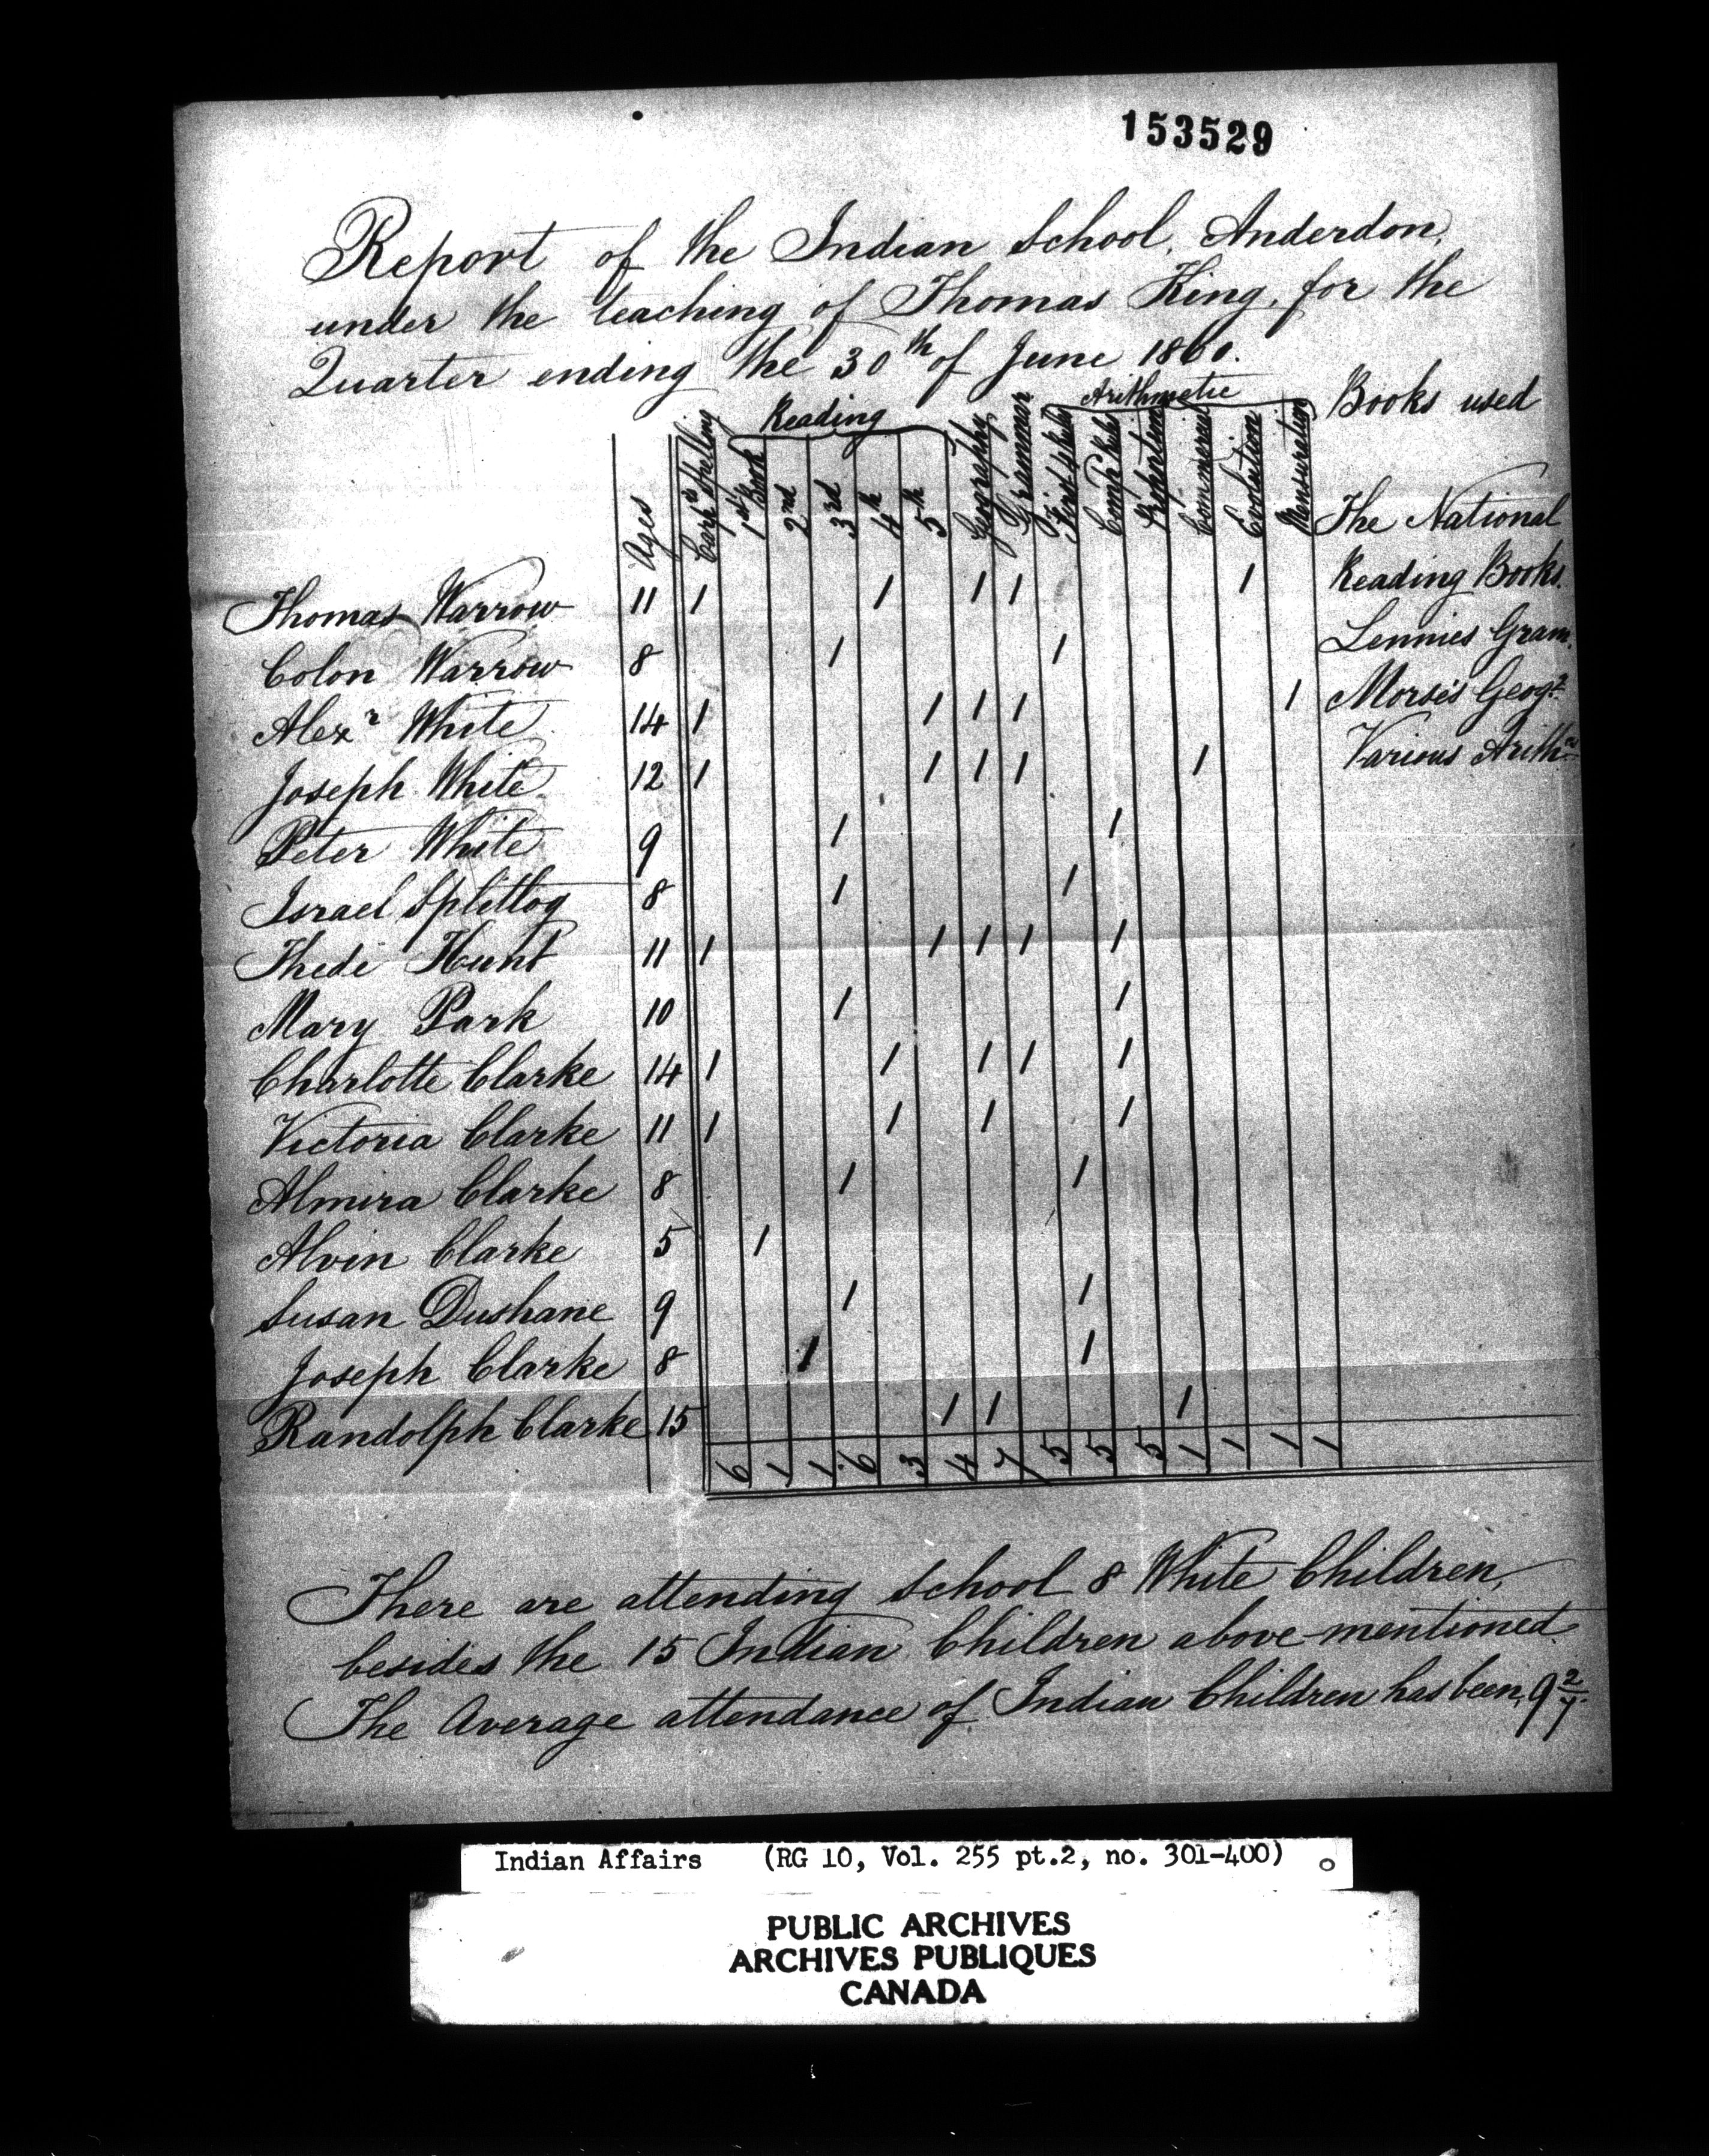 153529
Report of the Indian School, Anderdon,
under the teaching of Thomas King, for the
Quarter ending the 30th of June 1860.
Ages Spelling Reading 1st Book 2nd 3rd 4th 5th Geography Grammar Arithmetic First 4 Rules Comp'd Rules Proportion Commercial Evolution Mensuration Books used
Thomas Warrow 11 1 1 1 1 1
Colon Warrow 8 1 1
Alexr White 14 1 1 1 1 1
Joseph White 12 1 1 1 1 1
Peter White 9 1 1
Israel Splitlog 8 1 1
Thede Hunt 11 1 1 1 1 1
Mary Park 10 1 1
Charlotte Clarke 14 1 1 1 1 1
Victoria Clarke 11 1 1 1 1
Almira Clarke 8 1 1
Alvin Clarke 5 1
Susan Dushane 9 1 1
Joseph Clarke 8 1 1
Randolph Clarke 15 1 1 1
6 1 1 6 3 4 7 5 5 5 1 1 1 1
The National
Reading Books.
Lennies Gram.
Morse's Geogy
Various Ariths
There are attending School 8 White Children,
besides the 15 Indian Children above-mentioned
The Average attendance of Indian Children has been, 9 2/7.
Indian Affairs (RG 10, Vol. 255 pt.2, no. 301-400)
PUBLIC ARCHIVES
ARCHIVES PUBLIQUES
CANADA